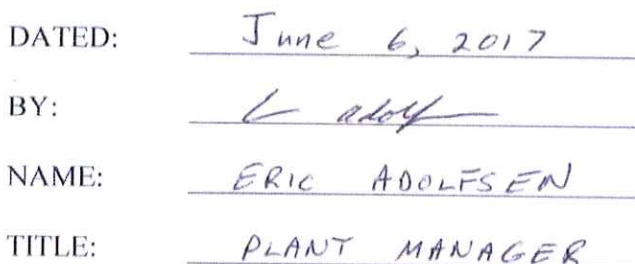 DATED: June 6, 2017
BY:
NAME: ERIC ADOLFSEN
TITLE: PLANT MANAGER